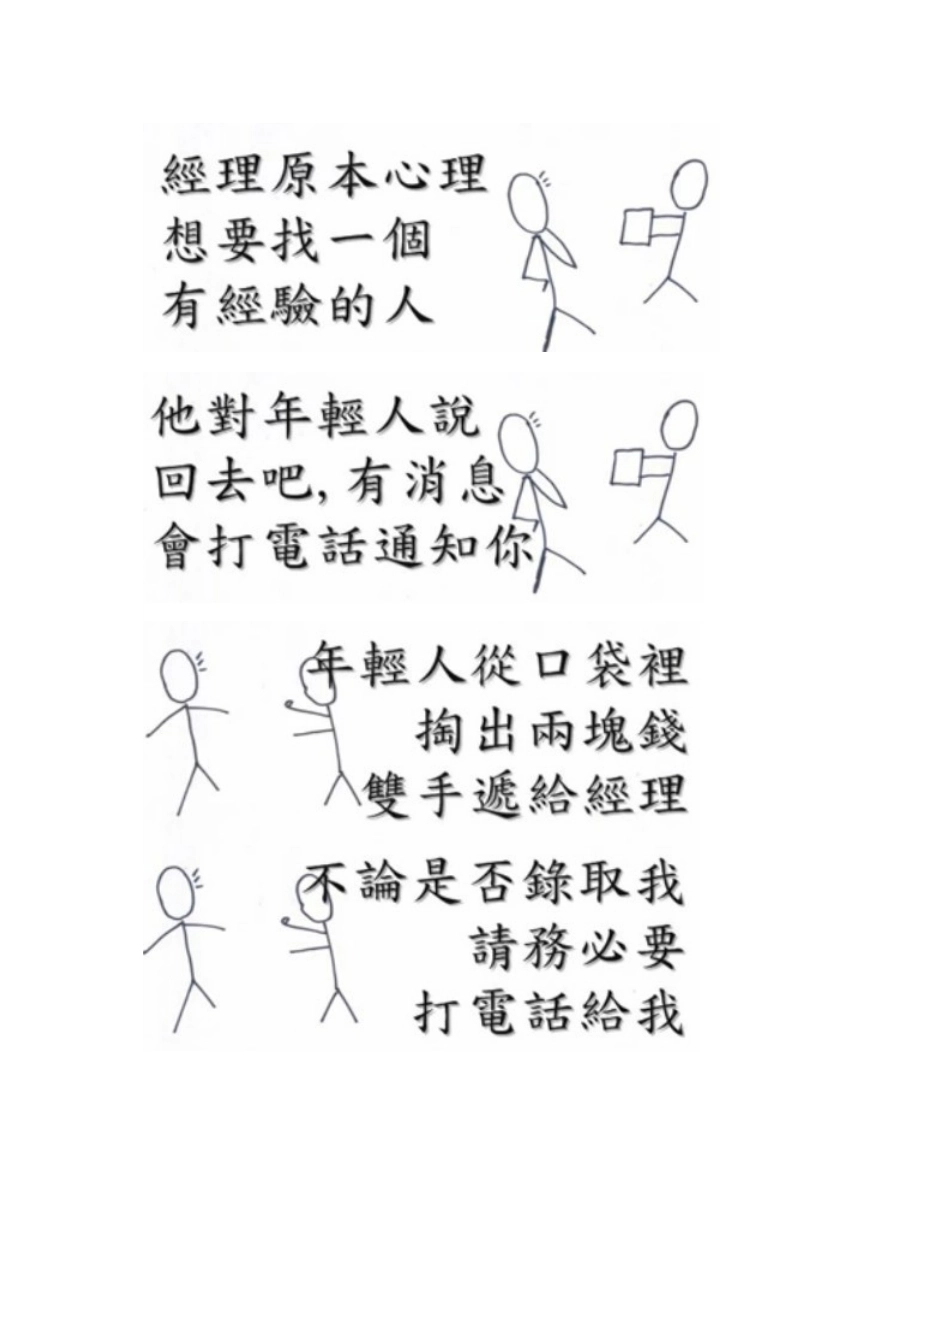 經理原本心理
想要找一個
有經驗的人
他對年輕人說
回去吧,有消息
會打電話通知你
年輕人從口袋裡
掏出兩塊錢
雙手遞給經理
不論是否錄取我
請務必要
打電話給我